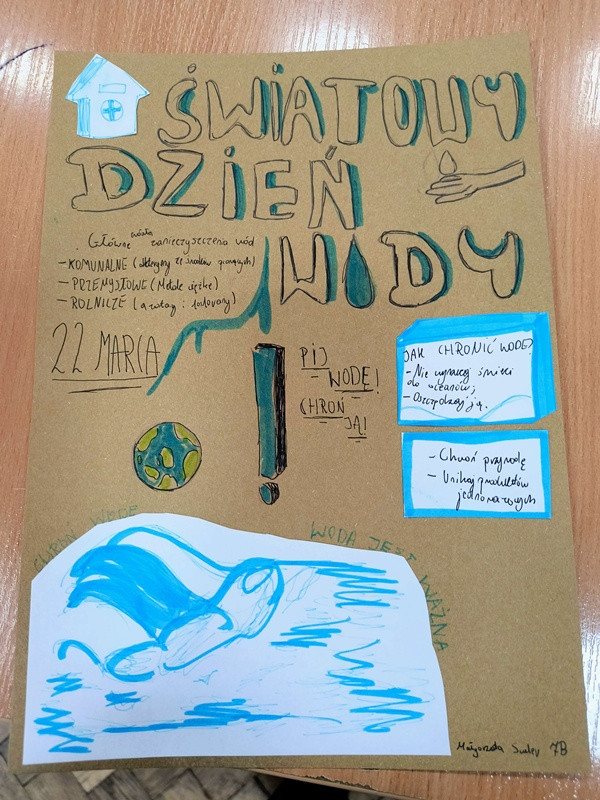 ŚWIATOWY
DZIEŃ
WODY
Główne źródła zanieczyszczenia wód
- KOMUNALNE (detergenty ze środków piorących)
- PRZEMYSŁOWE (Metale ciężkie)
- ROLNICZE (azotany i fosforany)
22 MARCA
PIJ
WODĘ!
CHROŃ
JĄ!
JAK CHRONIĆ WODĘ?
- Nie wyrzucaj śmieci
do oceanów;
- Oszczędzaj ją.
- Chroń przyrodę
- Unikaj produktów
jednorazowych
CHROŃ WODĘ
WODA JEST WAŻNA
Małgorzata 7B